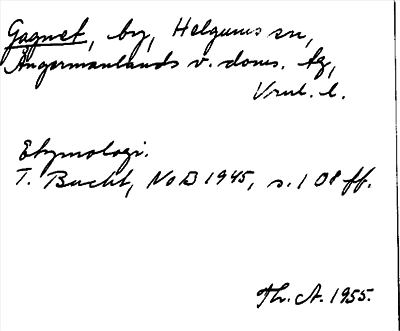 Gagnet, by, Helgums sn,
Ångermanlands v. doms. tg,
Vrnl. l.
Etymologi.
T. Bucht, NoB 1945, s. 108 ff.
Th. A. 1955.